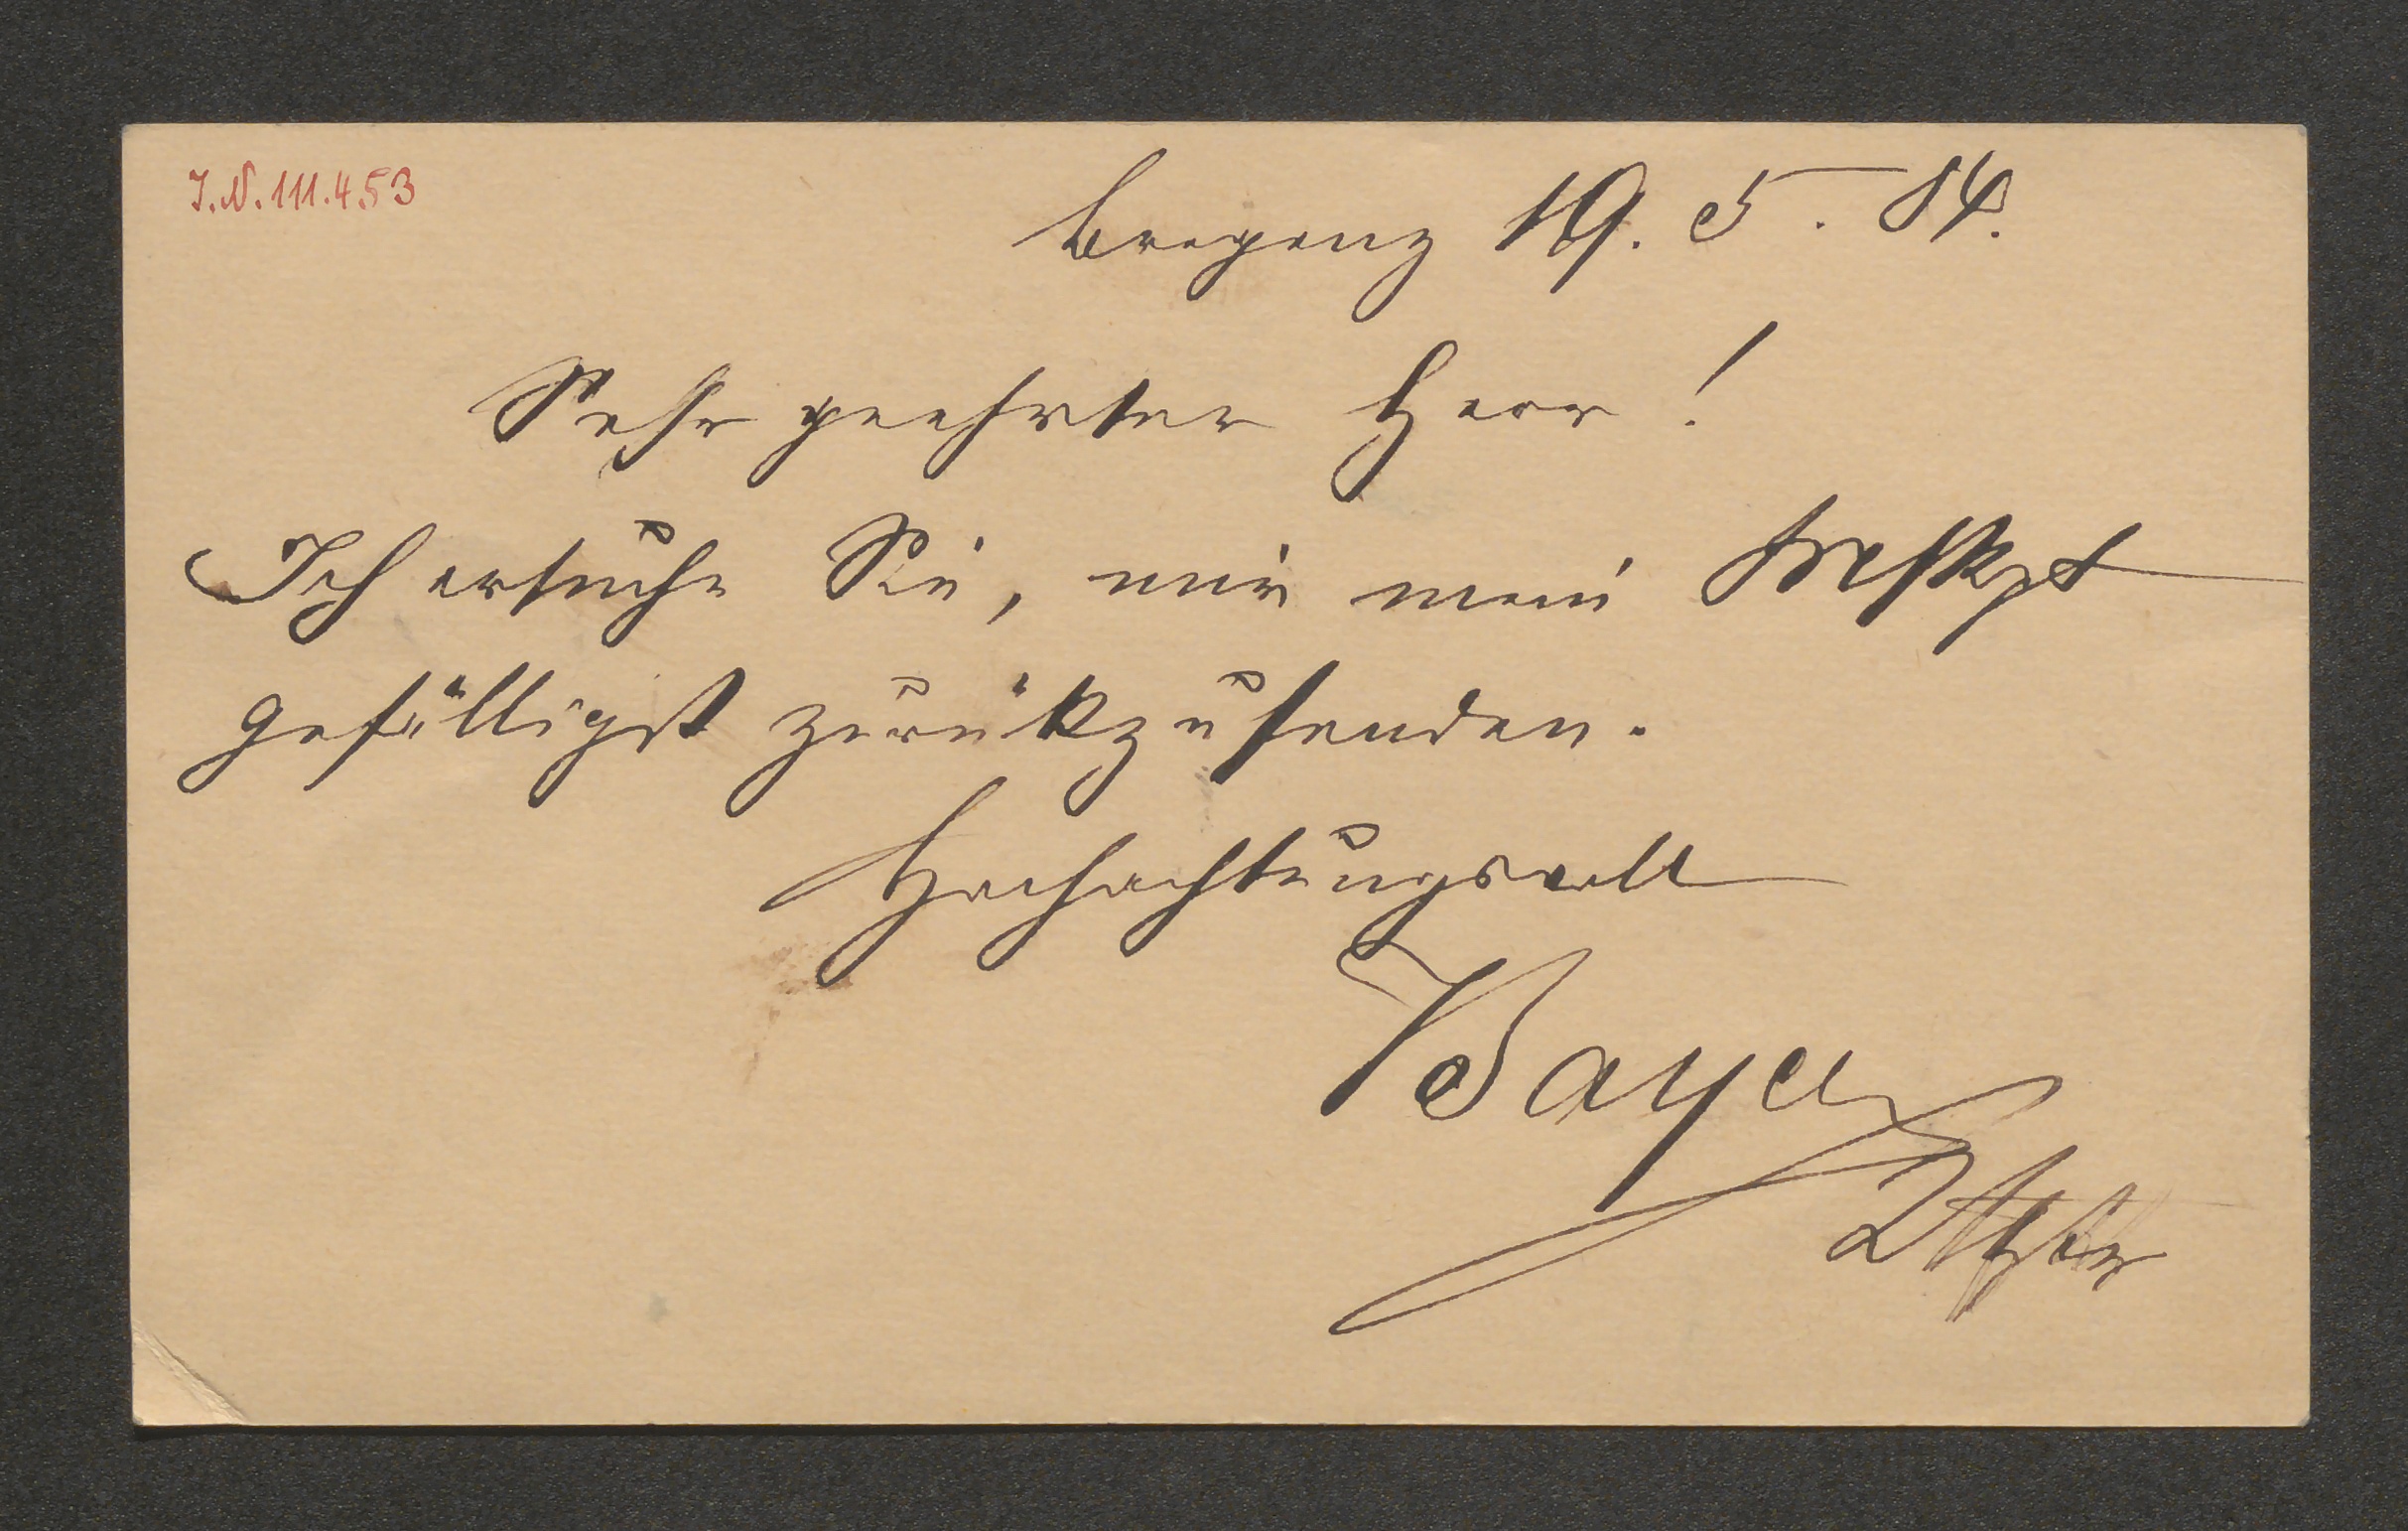 J.N. 111.453
Bregenz 19. 5. 84.
Sehr geehrter Herr!
Ich ersuche Sie, mir mein Mskpt
gefälligst zurükzusenden.
Hochachtungsvoll
Bayer